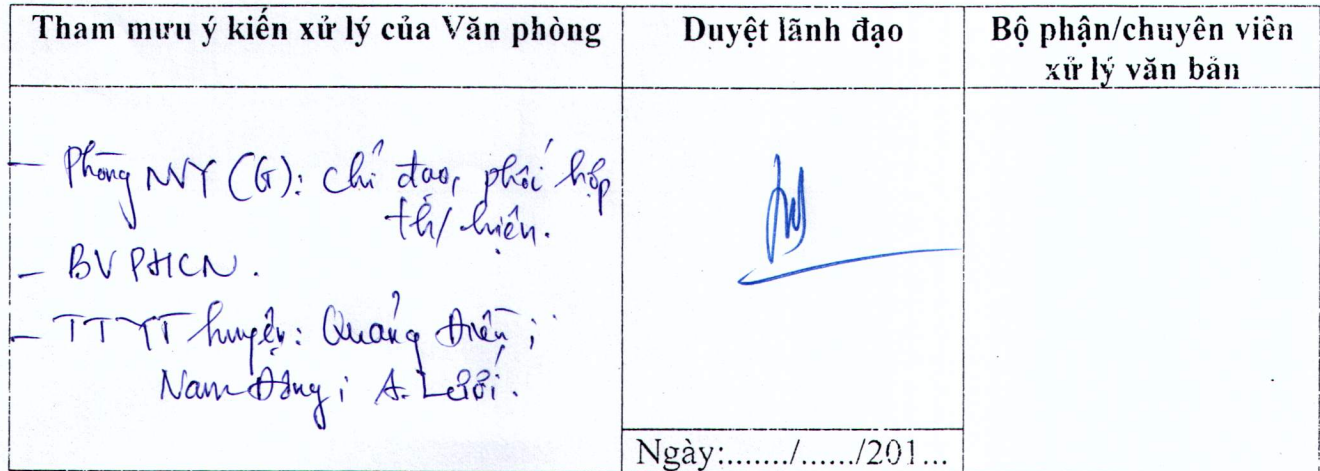 Tham mưu ý kiến xử lý của Văn phòng
Duyệt lãnh đạo
Bộ phận/chuyên viên
xử lý văn bản
– Phòng NVY (G): Chỉ đạo, phối hợp
th/ hiện.
– BV PHCN.
– TTYT huyện: Quảng Điền;
Nam Đông; A Lưới.
Ngày:......./....../201...